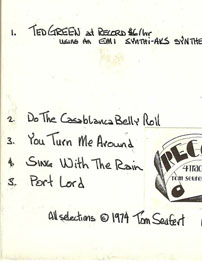 1. TED GREEN at RECORD $6/hr
using an EMI SYNTHI-AKS SYNTHE
2. Do The Casablanca Belly Roll
3. You Turn Me Around
4. Sing With The Rain
5. Port Lord
REC
4TRAC
TOM
All selections © 1974 Tom Seafert